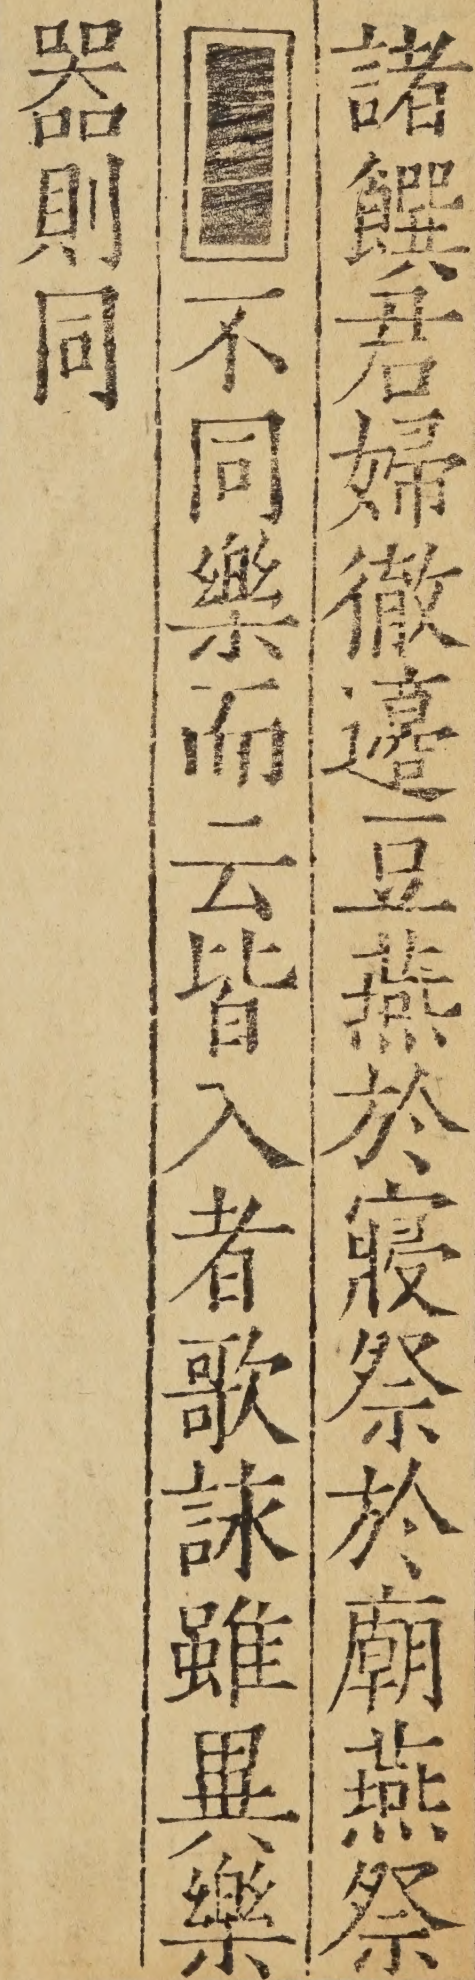 諸饌君婦徹籩豆燕於寢祭於廟燕祭
不同樂而云皆入者歌詠雖異樂
器則同